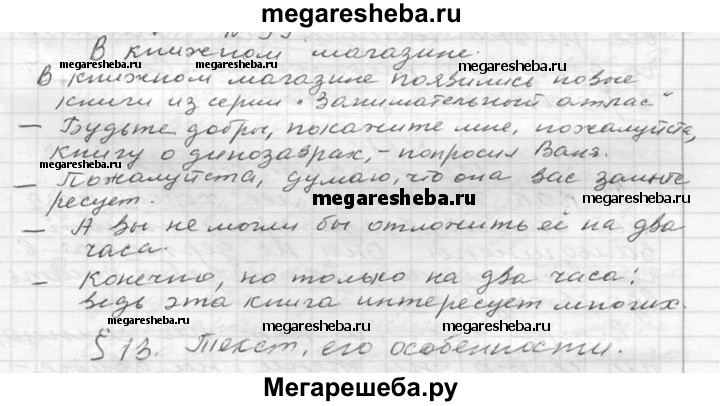 megaresheba.ru
В книжном магазине.
megaresheba.ru megaresheba.ru
В книжном магазине появились новые
megaresheba.ru
книги из серии "Занимательный атлас"
— Будьте добры, покажите мне, пожалуйста,
megaresheba.ru
книгу о динозаврах, - попросил Ваня.
megaresheba.ru
— Пожалуйста, думаю, что она вас заинте
ресует.
megaresheba.ru megaresheba.ru
— А вы не могли бы отложить её на два
часа.
megaresheba.ru
— Конечно, но только на два часа:
ведь эта книга интересует многих.
megaresheba.ru megaresheba.ru
§ 13. Текст, его особенности.
Мегарешеба.ру